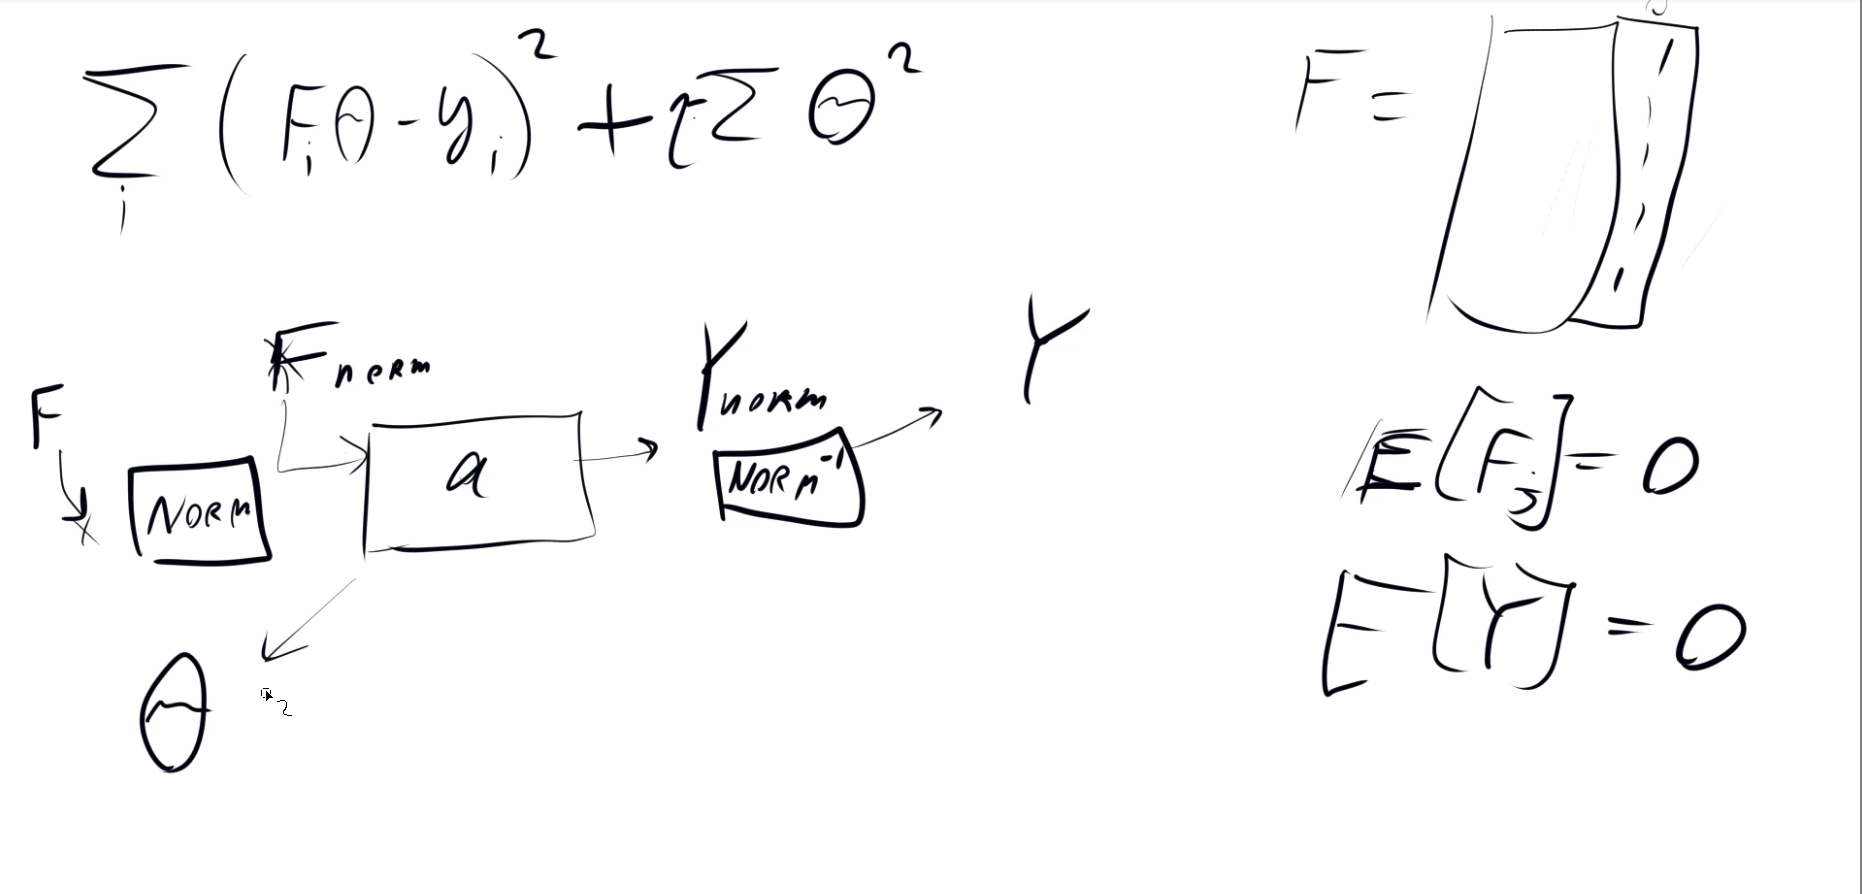 ∑ᵢ (Fᵢθ - yᵢ)² + τ∑ θ²
F =
F
NORM
Fnorm
a
Ynorm
NORM⁻¹
Y
θ
E[Fⱼ] = 0
E[Y] = 0